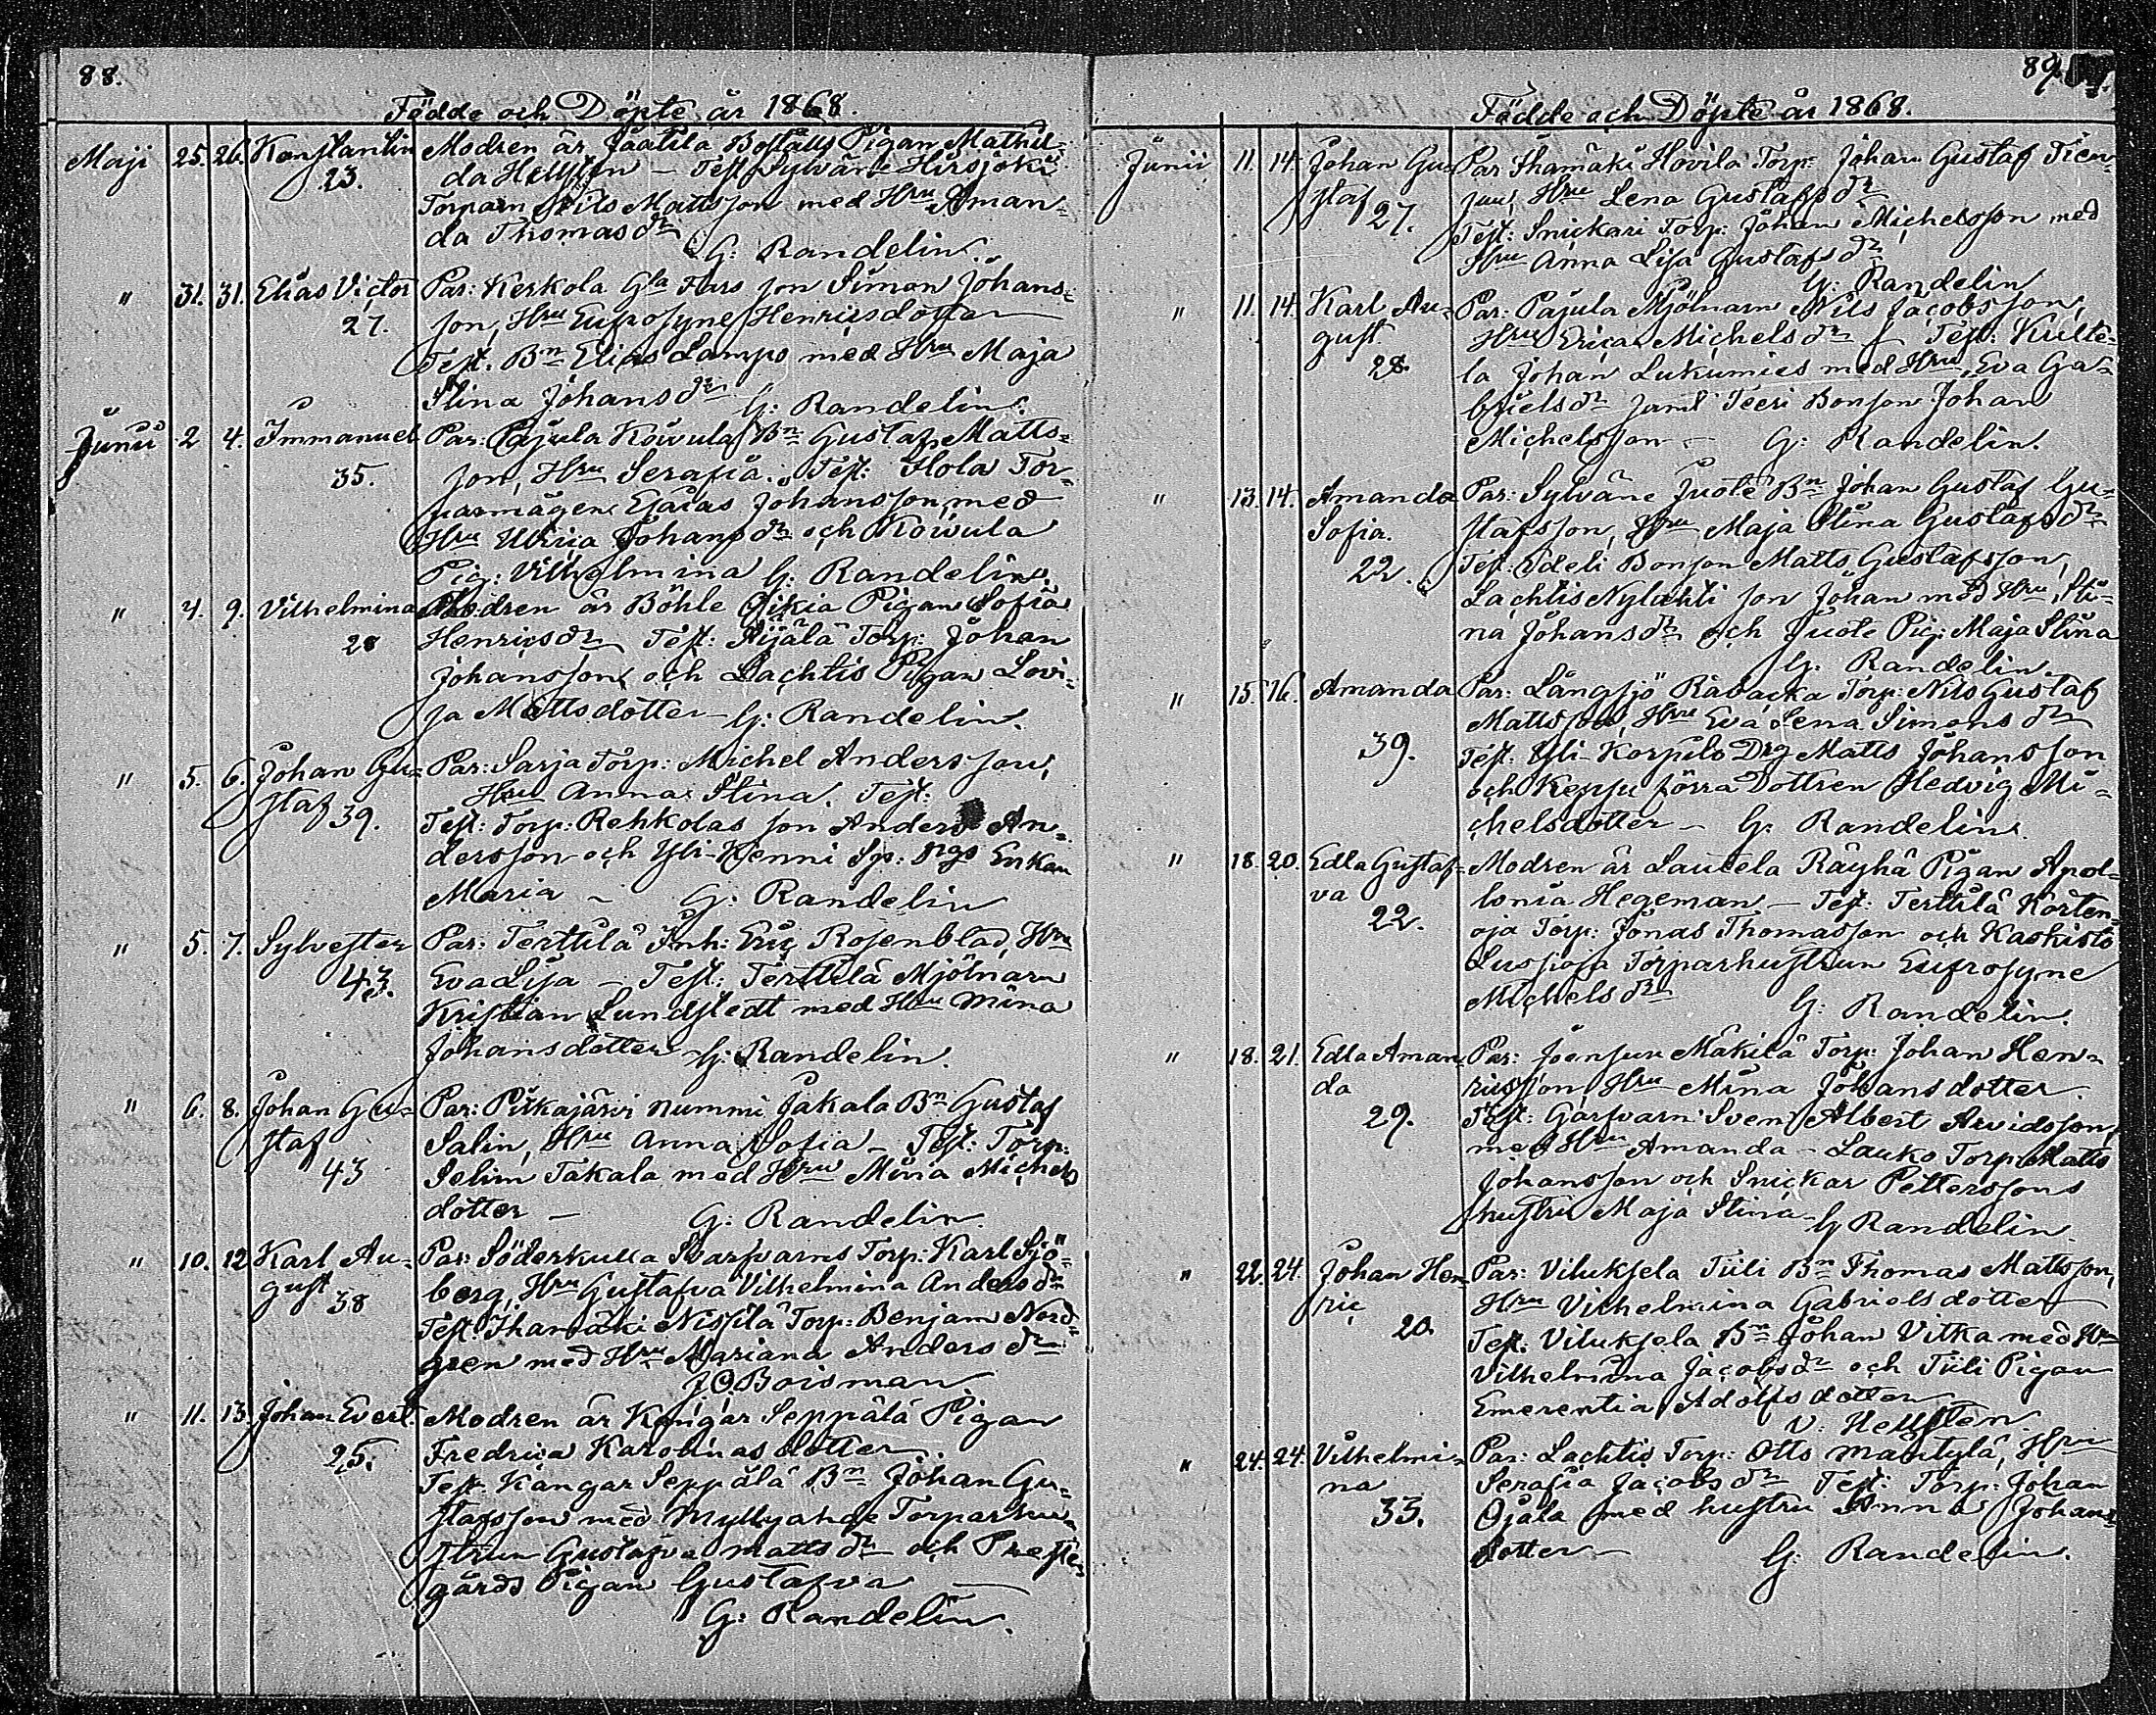 88.
Födde och Döpte år 1868.
Maji 25. 26. Konstantin Modren är Jaatila Bofälls Pigan Mathil-
23. da Hellsten – Test. Sylväne Hirsjoki
Torparn Nils Mattsson med Hru Aman-
da Thomas dr
G: Randelin.
" 31. 31. Elias Victor Par: Kerkola Gla Fars son Simon Johans-
27. son, Hru Eufrosyne Henricsdotter
Test. Bn Elias Lampo med Hru Maja
Stina Johans dr G: Randelin.
Junii 2 4. Immanuel Par: Pajula Koivula Bn Gustaf Matts-
35. son, Hru Serafia. Test: Flola Tor-
paremågen Esaias Johansson, med
Hru Ulrica Johans dr och Koivula
Pig: Vilhelmina G: Randelin.
" 4. 9. Vilhelmina Modren är Böhle Oikia Pigan Sofia
28 Henrics dr Test: Äijälä Torp: Johan
Johansson och Lachtis Pigan Lovi-
sa Mattsdotter – G: Randelin.
" 5. 6. Johan Gu- Par: Sarja Torp: Michel Andersson,
staf 39. Hru Anna Stina. Test:
Test: Torp: Rehkolas son Anders An-
dersson och Yli-Kjenni Sp: ngs Enkan
Maria – G: Randelin
" 5. 7. Sylvester Par: Terttilä Inh: Eric Rosenblad, Hru
43. Eva Lisa – Test: Terttilä Mjölnarn
Kristian Lundstedt med Hru Mina
Johansdotter G: Randelin.
" 6. 8. Johan Gu- Par: Pitkäjärvi Nummi Jakala Bn Gustaf
staf Salin, Hru Anna Sofia – Test: Torp:
43 Selim Takala med Hru Mina Michels
dotter – G: Randelin.
" 10. 12 Karl Au- Par: Söderkulla Svarfvarns Torp: Karl Sjö-
gust 38 berg, Hru Gustafva Vilhelmina Anders dr
Test. Ihamäki Nissilä Torp: Benjam Nord-
gren med Hru Mariana Anders dr
J. O. Boisman
" 11. 13. Johan Evert. Modren är Kangar Seppälä Pigan
25. Fredrica Karolinas dotter.
Test. Kangar Seppälä Bn Johan Gu-
stafsson med Myllyahde Torparhu-
strun Gustafva Matts dr och Preste-
gårds Pigan Gustafva –
G: Randelin.
89.
Födde och Döpte år 1868.
Junii 11. 14. Johan Gu- Par: Ihamäki Hovila Torp: Johan Gustaf Tien-
staf suu, Hru Lena Gustafs dr
27. Test: Snickari Torp: Johan Michelsson med
Hru Anna Lisa Gustafs dr
G: Randelin
" 11. 14. Karl Au- Par: Pajula Mjölnarn Nils Jacobsson,
gust. Hru Erica Michels dr Test: Kulte-
28. la Johan Lukumies med Hru Eva Ga-
briels dr samt Teeri Bonson Johan
Michelsson – G: Randelin.
" 13. 14. Amanda Par: Sylväne Juote Bn Johan Gustaf Gu-
Sofia. stafsson, Hru Maja Stina Gustafs dr
22. Test: Edeli Bonson Matts Gustafsson,
Lachtis Nylahti son Johan med Hru Sti-
na Johans dr och Juote Pig: Maja Stina
G: Randelin
" 15. 16. Amanda Par: Långsjö Råbacka Torp: Nils Gustaf
Mattsson, Hru Eva Lena Simons dr
39. Test: Yli-Korpilo Drg Matts Johansson
och Keppu förra Dottren Hedvig Mi-
chelsdotter – G: Randelin.
" 18. 20. Edla Gustaf- Modren är Lautela Räyhä Pigan Apol-
va lonia Hegeman – Test: Terttilä Korten-
22. oja Torp: Jonas Thomasson och Kaskisto
Susioja Torparhustrun Eufrosyne
Michels dr G: Randelin.
" 18. 21. Edla Aman- Par: Joensuu Mäkilä Torp: Johan Hen-
da ricsson Hru Mina Johansdotter.
29. Test: Garfvarn Sven Albert Arvidsson,
med Hru Amanda – Lauko Torp Matts
Johansson och Snickar Petterssons
hustru Maja Stina – G Randelin.
" 22. 24. Johan Hen- Par: Viluksela Tiili Bn Thomas Mattsson,
ric Hru Vilhelmina Gabrielsdotter
20. Test: Viluksela Bn Johan Vitka med Hru
Vilhelmina Jacobs dr och Tiili Pigan
Emerentia Adolfsdotter
V: Hellsten.
" 24. 24. Vilhelmi- Par: Lachtis Torp: Otto Mäntylä, Hru
na Serafia Jacobs dr Test: Torp: Johan
33. Ojala med hustru Anna Johans-
dotter – G: Randelin.